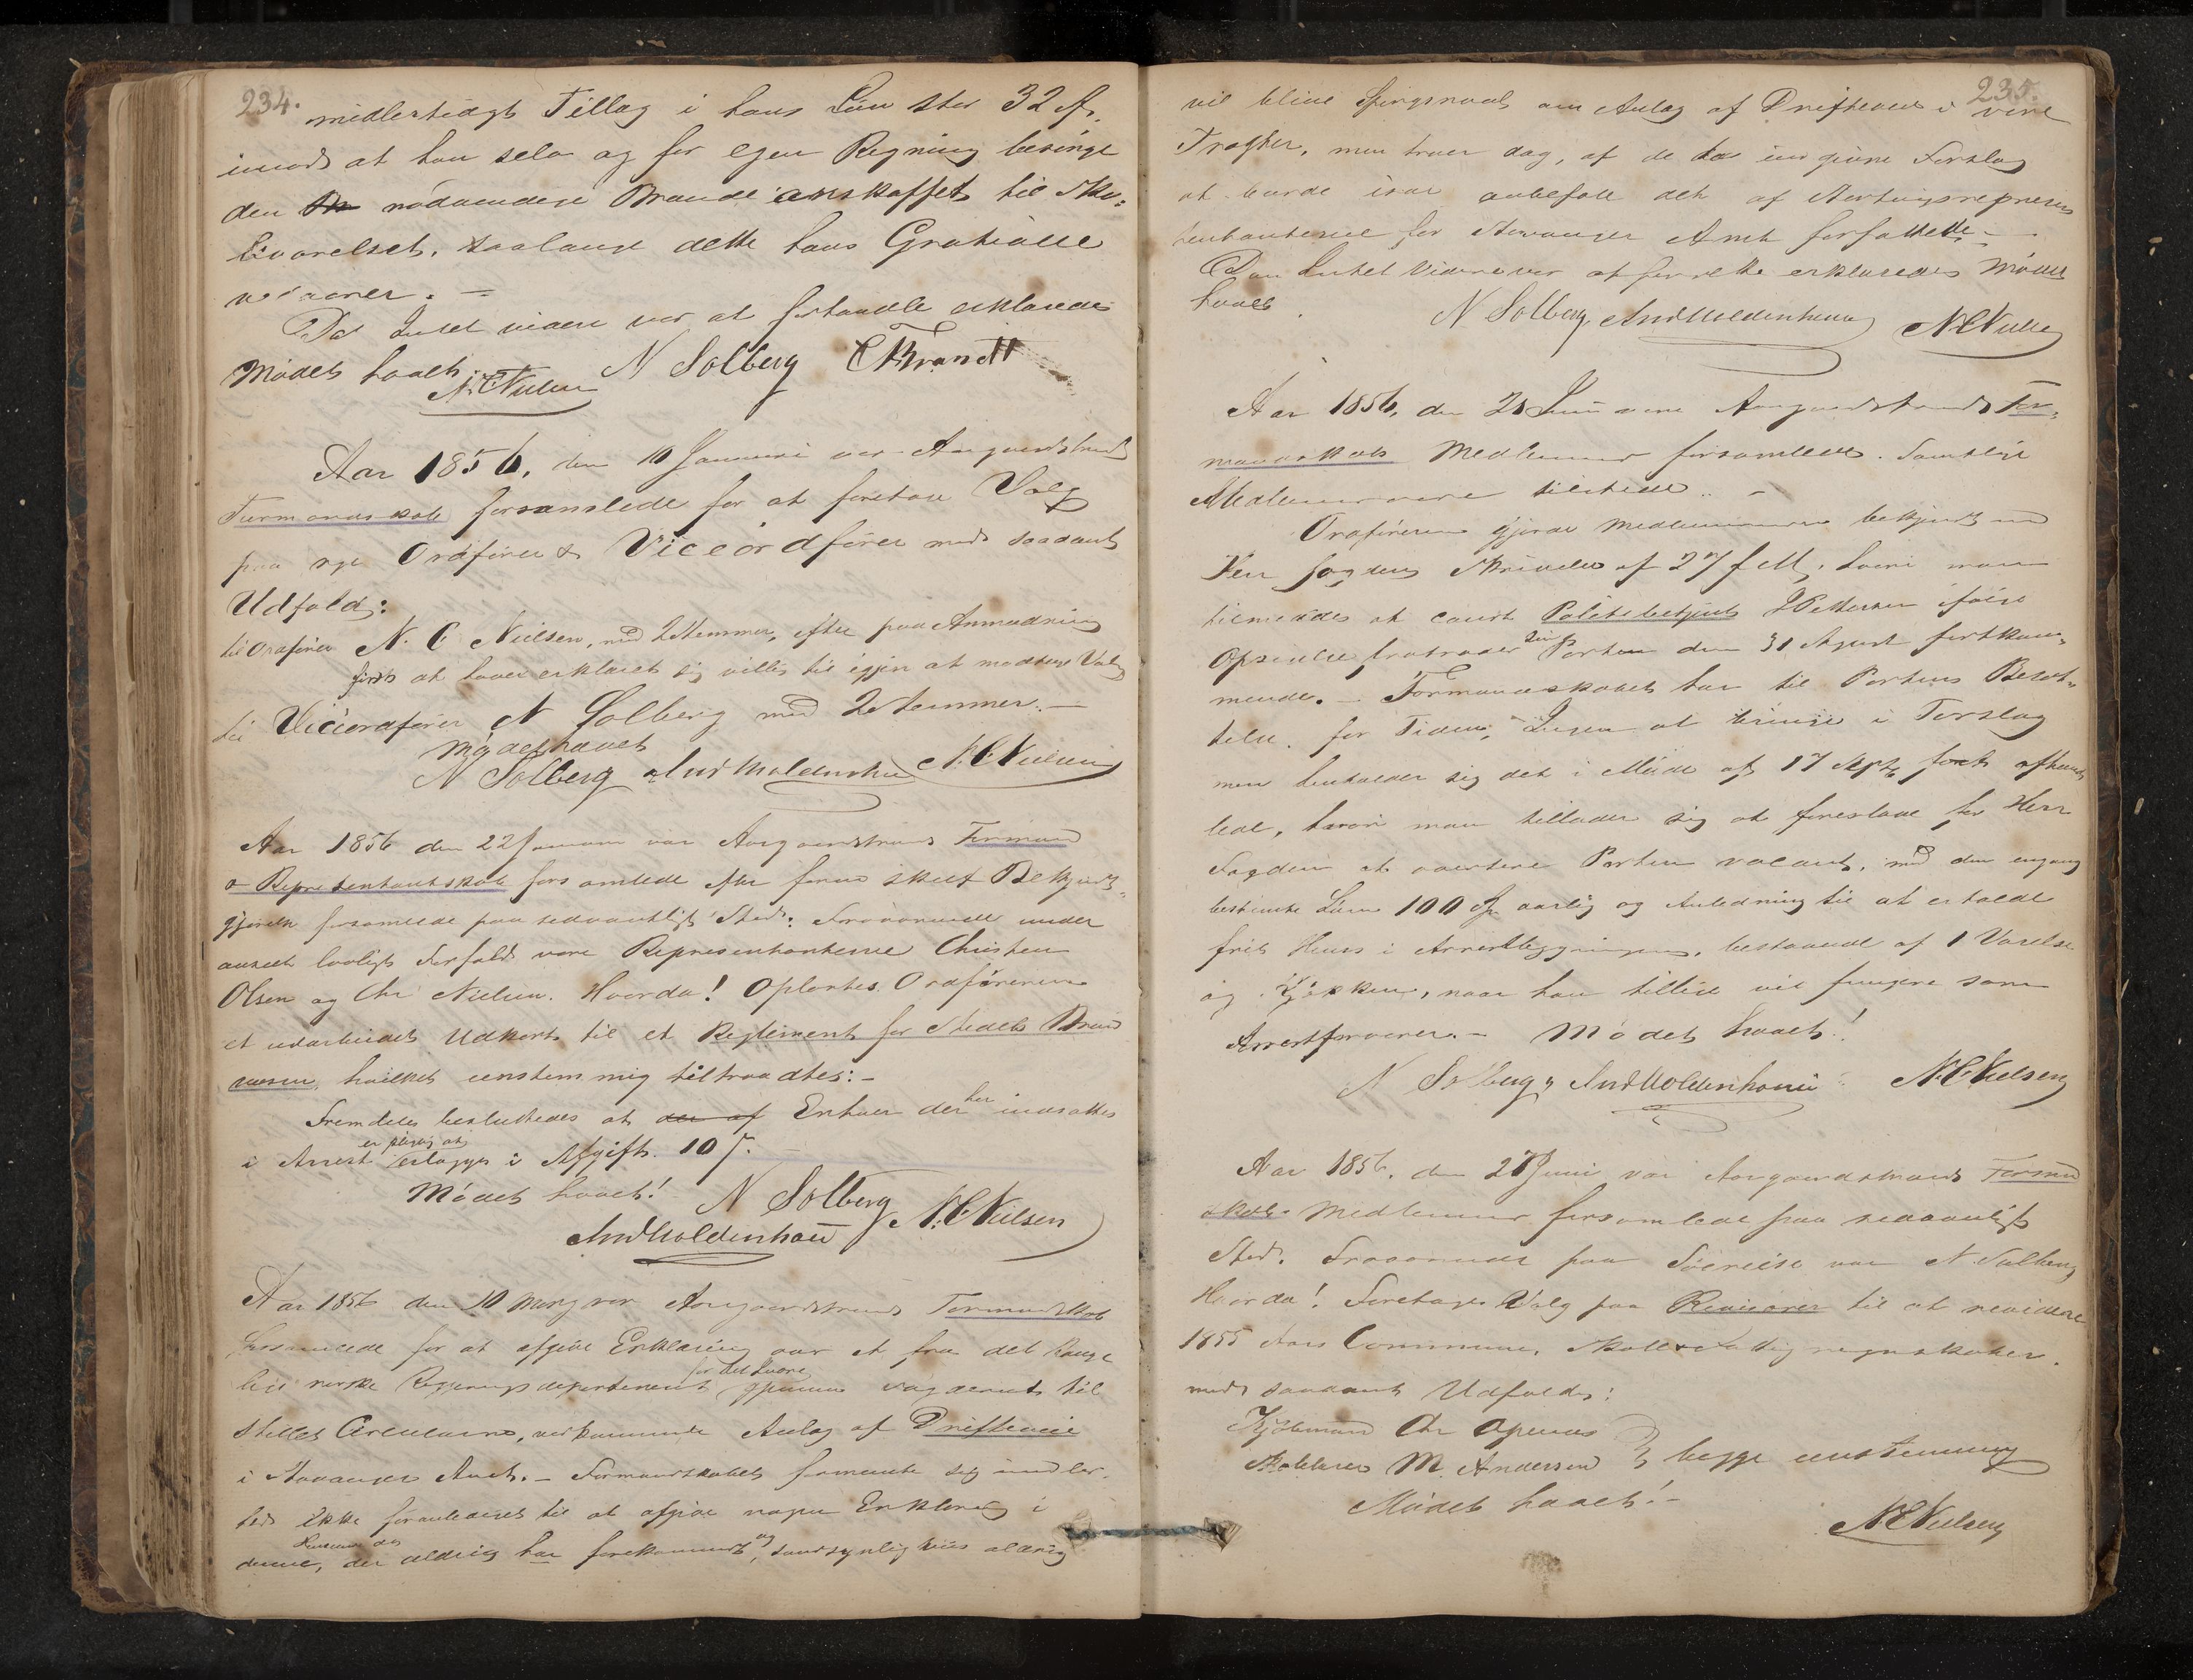 234.
midlertidgt Tillæg i hans Løn stor 32 
imod at han selv og for egen Regning besørge
den nødvendige Brænde anskaffet til Sko-
leværelset, saalænge dette hans Gratiale
vedvarer. –
Da Intet videre var at forhandle erklæredes
Mødet hævet. N. C. Nielsen N Solberg C Brandt
Aar 1856, den 10 Januari var Aasgaardstrands
Formandskab forsamlede for at foretage Valg
paa nye Ordfører & Viceordfører med saadant
Udfald:
til Ordfører N. C. Nielsen, med 2 Stemmer, efter paa Anmodning
først at have erklæret sig villig til igjen at modtage Valg
til Viceordfører N Solberg med 2 Stemmer. –
Mødet hævet
N Solberg And Moldenhauer N. C. Nielsen
Aar 1856 den 22 Januar var Aasgaardstrands Formand
o Repræsentantskab forsamlede efter forud skeet Bekjendt-
gjørelse forsamlede paa sedvanligt Sted: Fraværende under
anseet lovligt Forfald vare Repræsentanterne Christen
Olsen og Chr Nielsen. Hvorda! Oplæstes Ordførerens
et udarbeidet Udkast til et Reglement for Stedets Brand
væsen, hvilket eenstemmig tiltraadtes: –
Fremdeles besluttedes at der af Enhver der her indsættes
i Arrest er pligtig at erlægge i Afgift 10
Mødet hævet! N Solberg N. C. Nielsen
And Moldenhauer
Aar 1856 den 10 Marz var Aasgaardstrands Formandskab
forsamlede for at afgive Erklæring over et fra det Konge
lige norske Regjerings departement for det Indre gjennem Fogderiet til
stillet Circulaire, vedkommende Anlæg af Drifteveie
i Stavanger Amt. – Formandskabet formente sig imidler-
tid ikke foranlediget til at afgive nogen Erklæring i
denne, der aldrig har forekommet og sandsynligviis aldrig
235.
vil blive Spørgsmaal om Anlæg af Drifteveie i vore
Trakter, men troer dog, af de indgivne Forslag
at burde især anbefale det af Storthingsrepræsen
tanterne for Stavanger Amt forfattede –
Da Intet videre var at foretage erklæredes Mødet
hævet. N Solberg, And Moldenhauer N. C. Nielsen
Aar 1856, den 2 Juni vare Aasgaardstrands For-
mandskabs Medlemmer forsamlede. Samtlige
Medlemmer vare tilstede. –
Ordføreren gjorde Medlemmerne bekjendt med
Herr Fogdens Skrivelse af 27 f M, hvori man
tilmeldes at const Politibetjent Pettersen ifølge
Opsigelse fratræder sin Posten den 31 August førstkom-
mende. – Formandskabet har til Postens Besæt-
telse, for Tiden, Ingen at bringe i Forslag
men henholder sig det i Møde af 17 Septb
lede, hvori man tillader sig at foreslaae for Herr
Fogden at avertere Posten vacant, med den engang
bestemte Løn 100 aarlig og Anledning til at erholde
frit Huus i Arrestbygningen, bestaaende af 1 Værelse
og Kjøkken, naar han tillige vil fungere som
Arrestforvarer. – Mødet hævet!
N Solberg And Moldenhauer N. C. Nielsen
Aar 1856, den 27 Juni var Aasgaardstrands Formand
skabs Medlemmer forsamlede paa sedvanligt
Sted. Fraværende paa Søereise var N Solberg
Hvorda! Foretages Valg paa Revisorer til at revidere
1855 Aars Commune, Skole & Fattigregnskaber.
med saadant Udfald:
Kjøbmand Chr
Skolelærer M. Andersen } begge eenstemmig
Mødet hævet! –
N. C. Nielsen